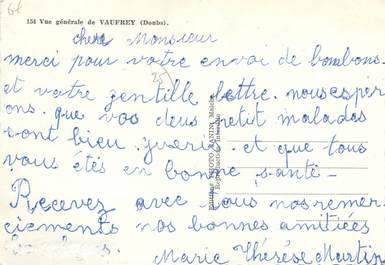 154 Vue générale de VAUFREY (Doubs).
cher Monsieur
merci pour votre envoi de bonbons.
et votre gentille lettre. nous esper
ons. que vos deus petit malades
sont bien guéris. et que tous
vous étés en bonne santé-
Recevez avec tous nos remer
ciements nos bonnes amitiées
Marie Thérèse Martin